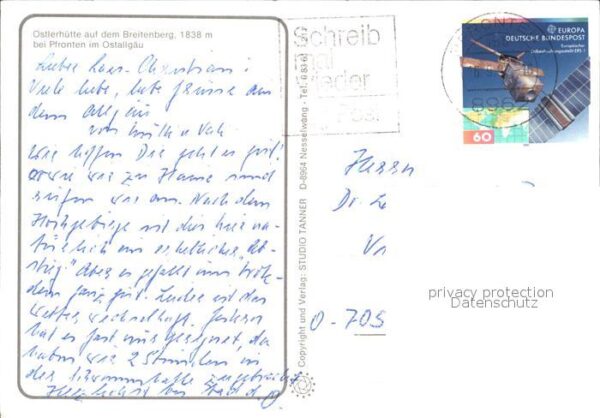 Ostlerhütte auf dem Breitenberg, 1838 m
bei Pfronten im Ostallgäu
Lieber Lars-Christian!
Viele liebe, liebe Grüsse aus
dem Allgäu
von
Wir hoffen Dir geht es gut!
wir zu Hause sind
rufen wir an. Nach dem
Hochgebirge ist dies hier na-
türlich ein erheblicher "Ab-
stieg". Aber es gefällt uns trotz-
dem ganz gut. Leider ist das
Wetter wechselhaft. Gestern
hat es fast nur geregnet, da
haben wir 2 Stunden in
der Schwimmhalle zugebracht
Herzlichst
Copyright und Verlag: STUDIO TANNER D-8964 Nesselwang · Tel. 0 83 61
Schreib
mal
wieder
Post
EUROPA
DEUTSCHE BUNDESPOST
Europäischer
Fernerkundungssatellit ERS-1
60
896
Herrn
Dr. L
O-705
privacy protection
Datenschutz